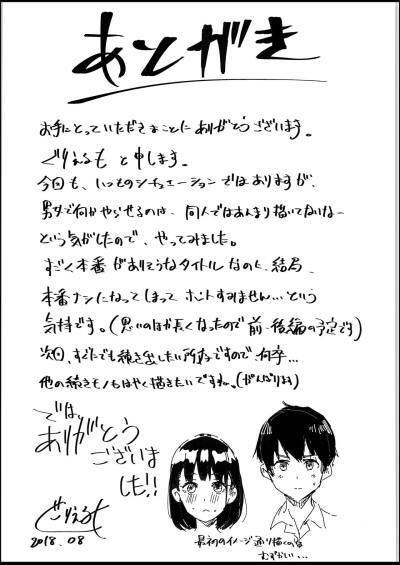 あとがき
お手にとっていただきまことにありがとうございます。
ぐりえるもと申します。
今回も、いつものシチュエーションではありますが、
男女で何かやらせるのは、同人ではあんまり描いてないなー
という気がしたので、やってみました。
すごく本番がありそうなタイトルなのに、結局、
本番ナシになってしまってホントすみません…という
気持です。(思いのほか長くなったので前・後編の予定です)
次回、すぐにでも続き出したい所存ですので何卒…
他の続きモノもはやく描きたいですね。(がんばります)
では、
ありがとう
ございま
した!!
ぐりえるも
2018.08
最初のイメージ通り描くのは
むずかしい…